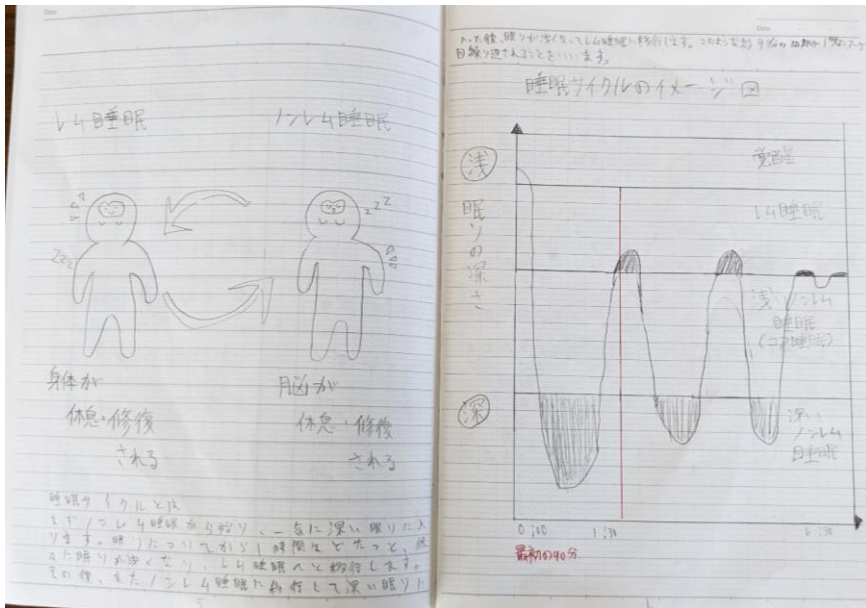 レム睡眠
ノンレム睡眠
zzz
zzz
身体が
休息・修復
される
脳が
休息・修復
される
睡眠サイクルとは
まずノンレム睡眠から始り、一気に深い眠りに入
ります。眠りについてから1時間ほどたつと、徐
々に眠りが浅くなり、レム睡眠へと移行します。
その後、またノンレム睡眠に移行して深い眠りに
入った後、眠りが浅くなってレム睡眠に移行します。このような約90分の
回繰り返されることをいいます。
睡眠サイクルのイメージ図
浅
眠りの深さ
深
覚醒
レム睡眠
浅いノンレム
睡眠
(コア睡眠)
深い
ノンレム
睡眠
0:00
1:30
6:30
最初の90分